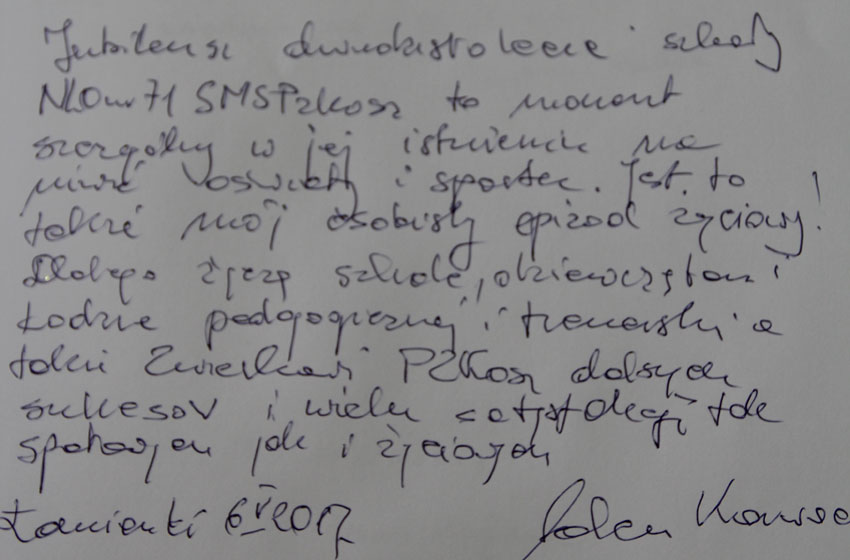 Jubileusz dwudziestolecia szkoły
NLO nr 71 SMS PZKosz to moment
szczególny w jej istnieniu na
niwie oświaty i sportu. Jest to
także mój osobisty epizod życiowy!
Dlatego życzę szkole, dziewczętom i
kadrze pedagogicznej i trenerskiej a
także Związkowi PZKosz dalszych
sukcesów i wielu satysfakcji tak
sportowych jak i życiowych
Łomianki 6 V 2017